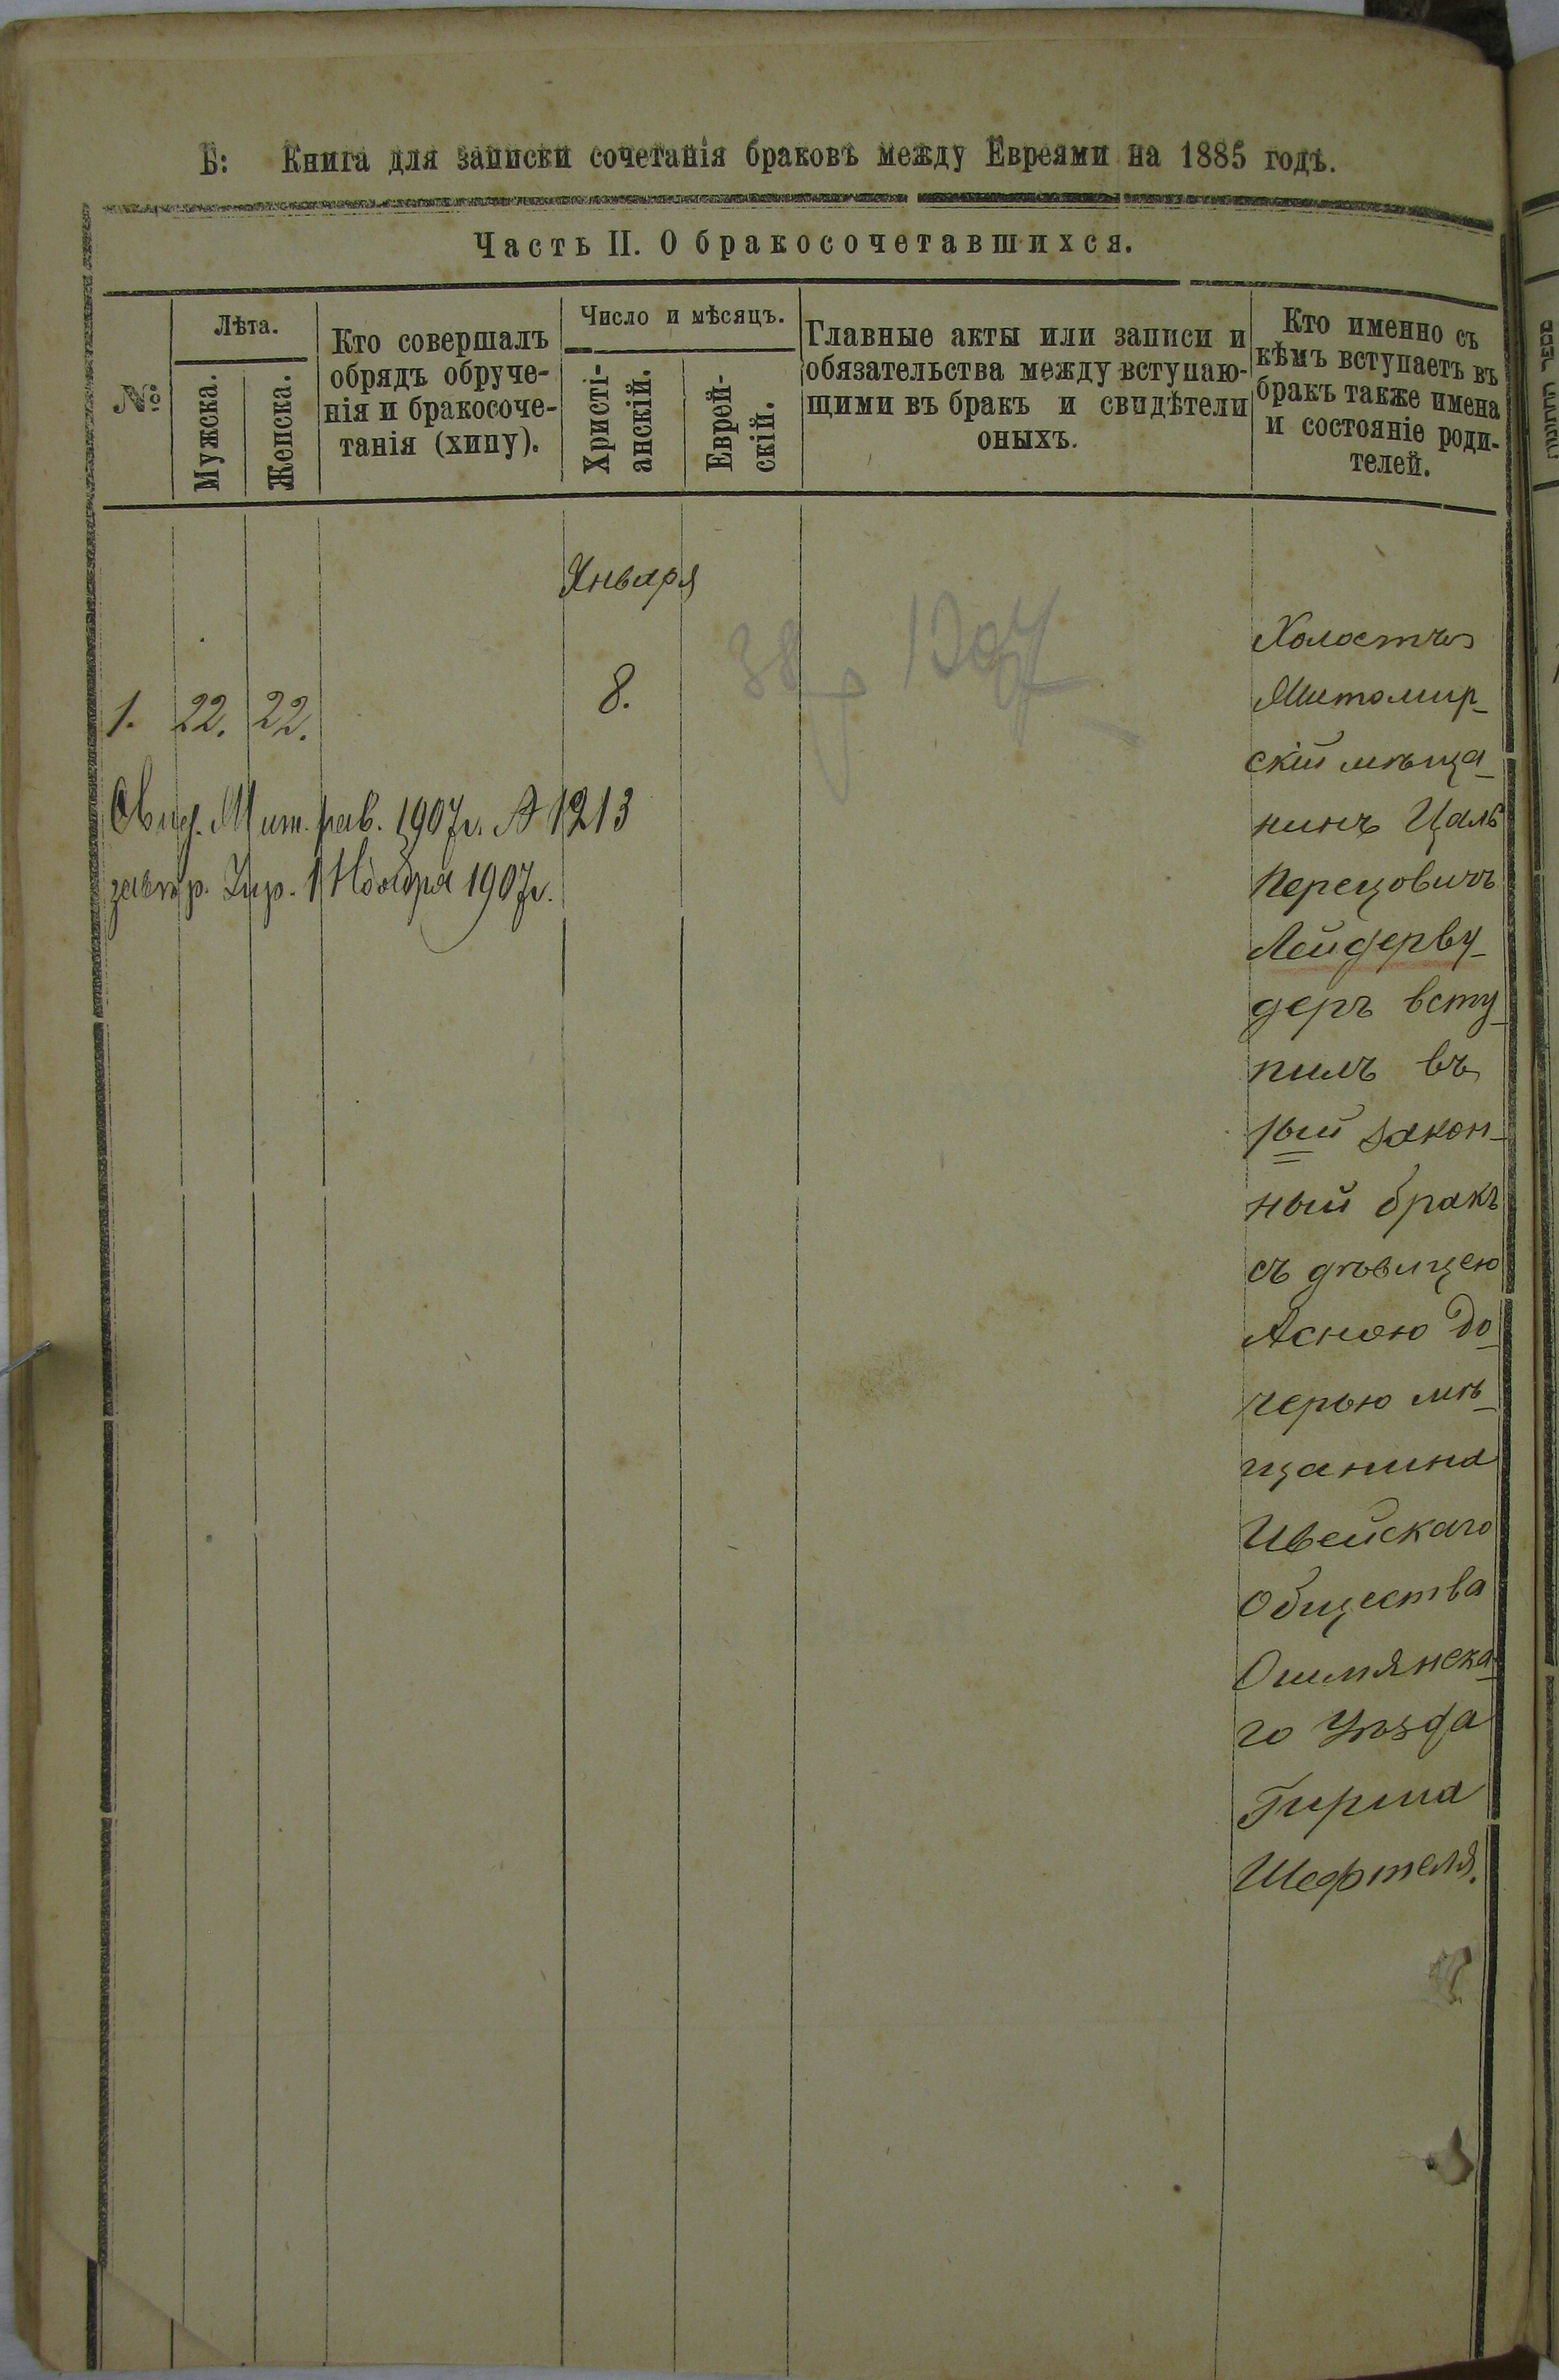 Б: Книга для записки сочетанія браковъ между Евреями на 1885 годъ.
Часть II. О бракосочетавшихся.
№
Лѣта.
Мужска.
Женска.
Кто совершалъ
обрядъ обруче-
нія и бракосоче-
танія (хипу).
Число и мѣсяцъ.
Христі-
анскій.
Еврей-
скій.
Главные акты или записи и
обязательства между вступаю-
щими въ бракъ и свидѣтели
оныхъ.
Кто именно съ
кѣмъ вступаетъ въ
бракъ также имена
и состояніе роди-
телей.
Января
1. 22. 22. 8.
Свид. Жит. рав. 1907г. № 1213
1 Ноября 1907г.
38 1907
Холостъ
Житомир-
скій мѣща-
нинъ Цаль
Перецовичъ
Лейдерву-
деръ всту-
пилъ въ
1ый закон-
ный бракъ
съ дѣвицею
Асною до-
черью мѣ-
щанина
Ивейскаго
Общества
Ошмянска-
го Уѣзда
Гирша
Шефтеля.